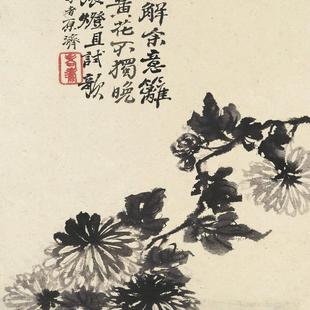 解余意籬
黄花不獨晚
燈且試歌
原濟